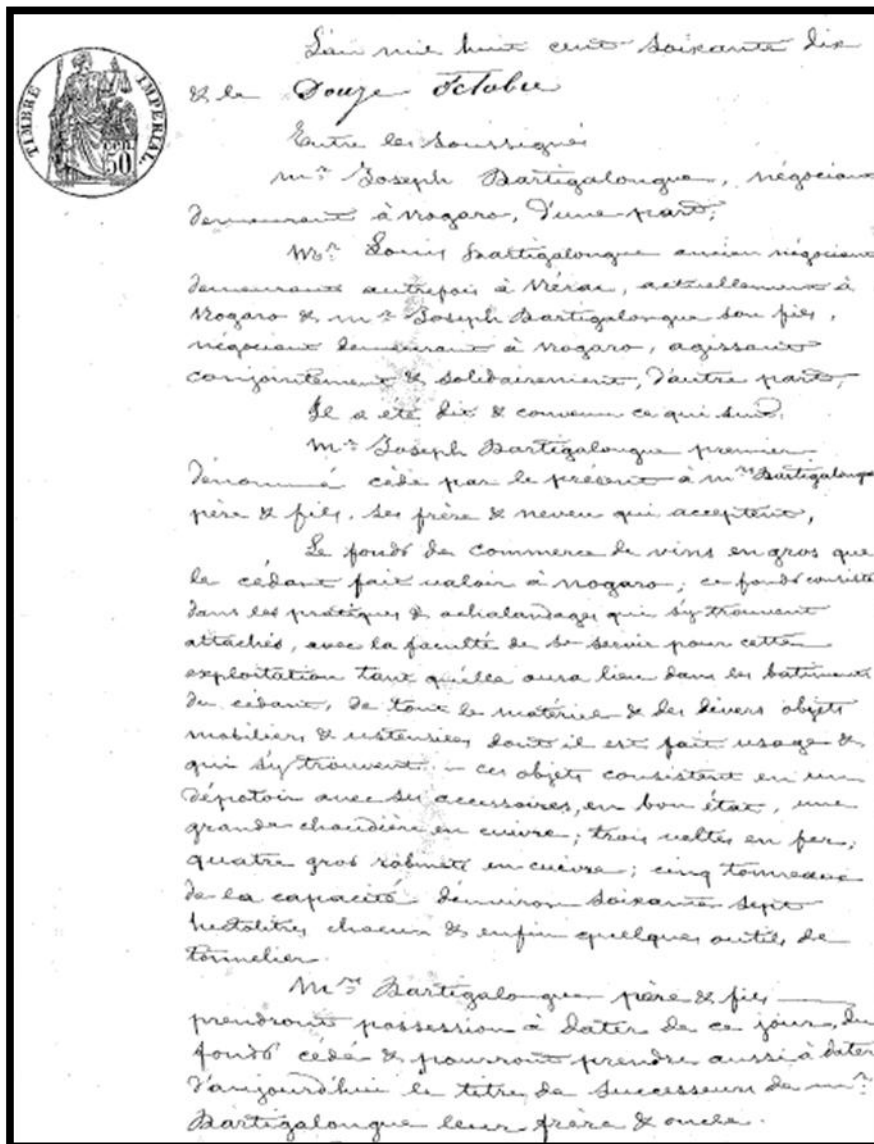 TIMBRE IMPÉRIAL
50 CEN
L'an mil huit cent soixante dix
& le Douze Octobre
Entre les soussignés
Mr Joseph Dartigalongue, négociant
demeurant à Nogaro, d'une part;
Mr Louis Dartigalongue ancien négociant
demeurant autrefois à Nérac, actuellement à
Nogaro & Mr Joseph Dartigalongue son fils,
négociant demeurant à Nogaro, agissant
conjointement & solidairement, d'autre part,
Il a été dit & convenu ce qui suit.
Mr Joseph Dartigalongue premier
dénommé cède par le présent à Mrs Dartigalongue
père & fils, ses frère & neveu qui acceptent,
Le fonds de commerce de vins en gros que
le cédant fait valoir à Nogaro; ce fonds consiste
dans les pratiques & achalandages qui s'y trouvent
attachés, avec la faculté de se servir pour cette
exploitation tant qu'elle aura lieu dans les batiments
du cédant, de tout le matériel & des divers objets
mobiliers & ustensiles dont il est fait usage &
qui s'y trouvent. – ces objets consistent en un
dépotoir avec ses accessoires, en bon état, une
grande chaudière en cuivre; trois veltes en fer;
quatre gros robinets en cuivre; cinq tonneaux
de la capacité d'environ soixante sept
hectolitres chacun & enfin quelques outils de
tonnelier.
Mrs Dartigalongue père & fils
prendront possession à dater de ce jour, du
fonds cédé & pourront prendre aussi à dater
d'aujourd'hui le titre de successeurs de Mr
Dartigalongue leur frère & oncle.